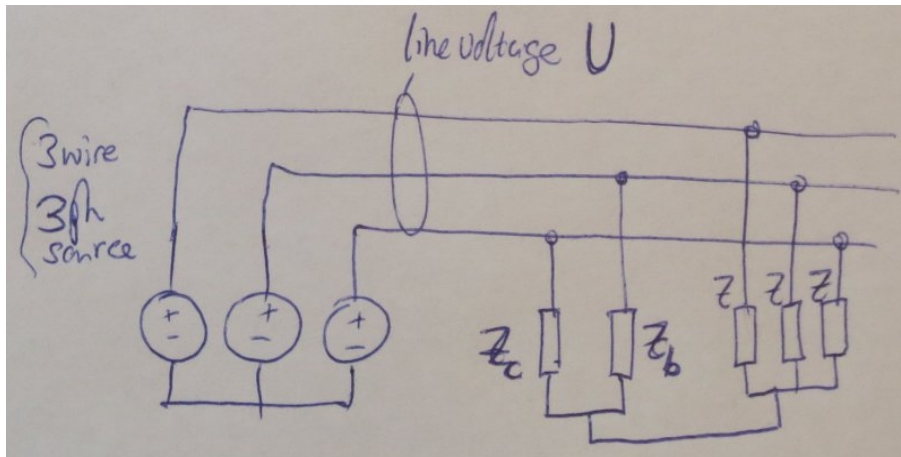 line voltage U
3 wire
3ph
source
+
-
+
-
+
-
Z
Z
Z
Zc
Zb